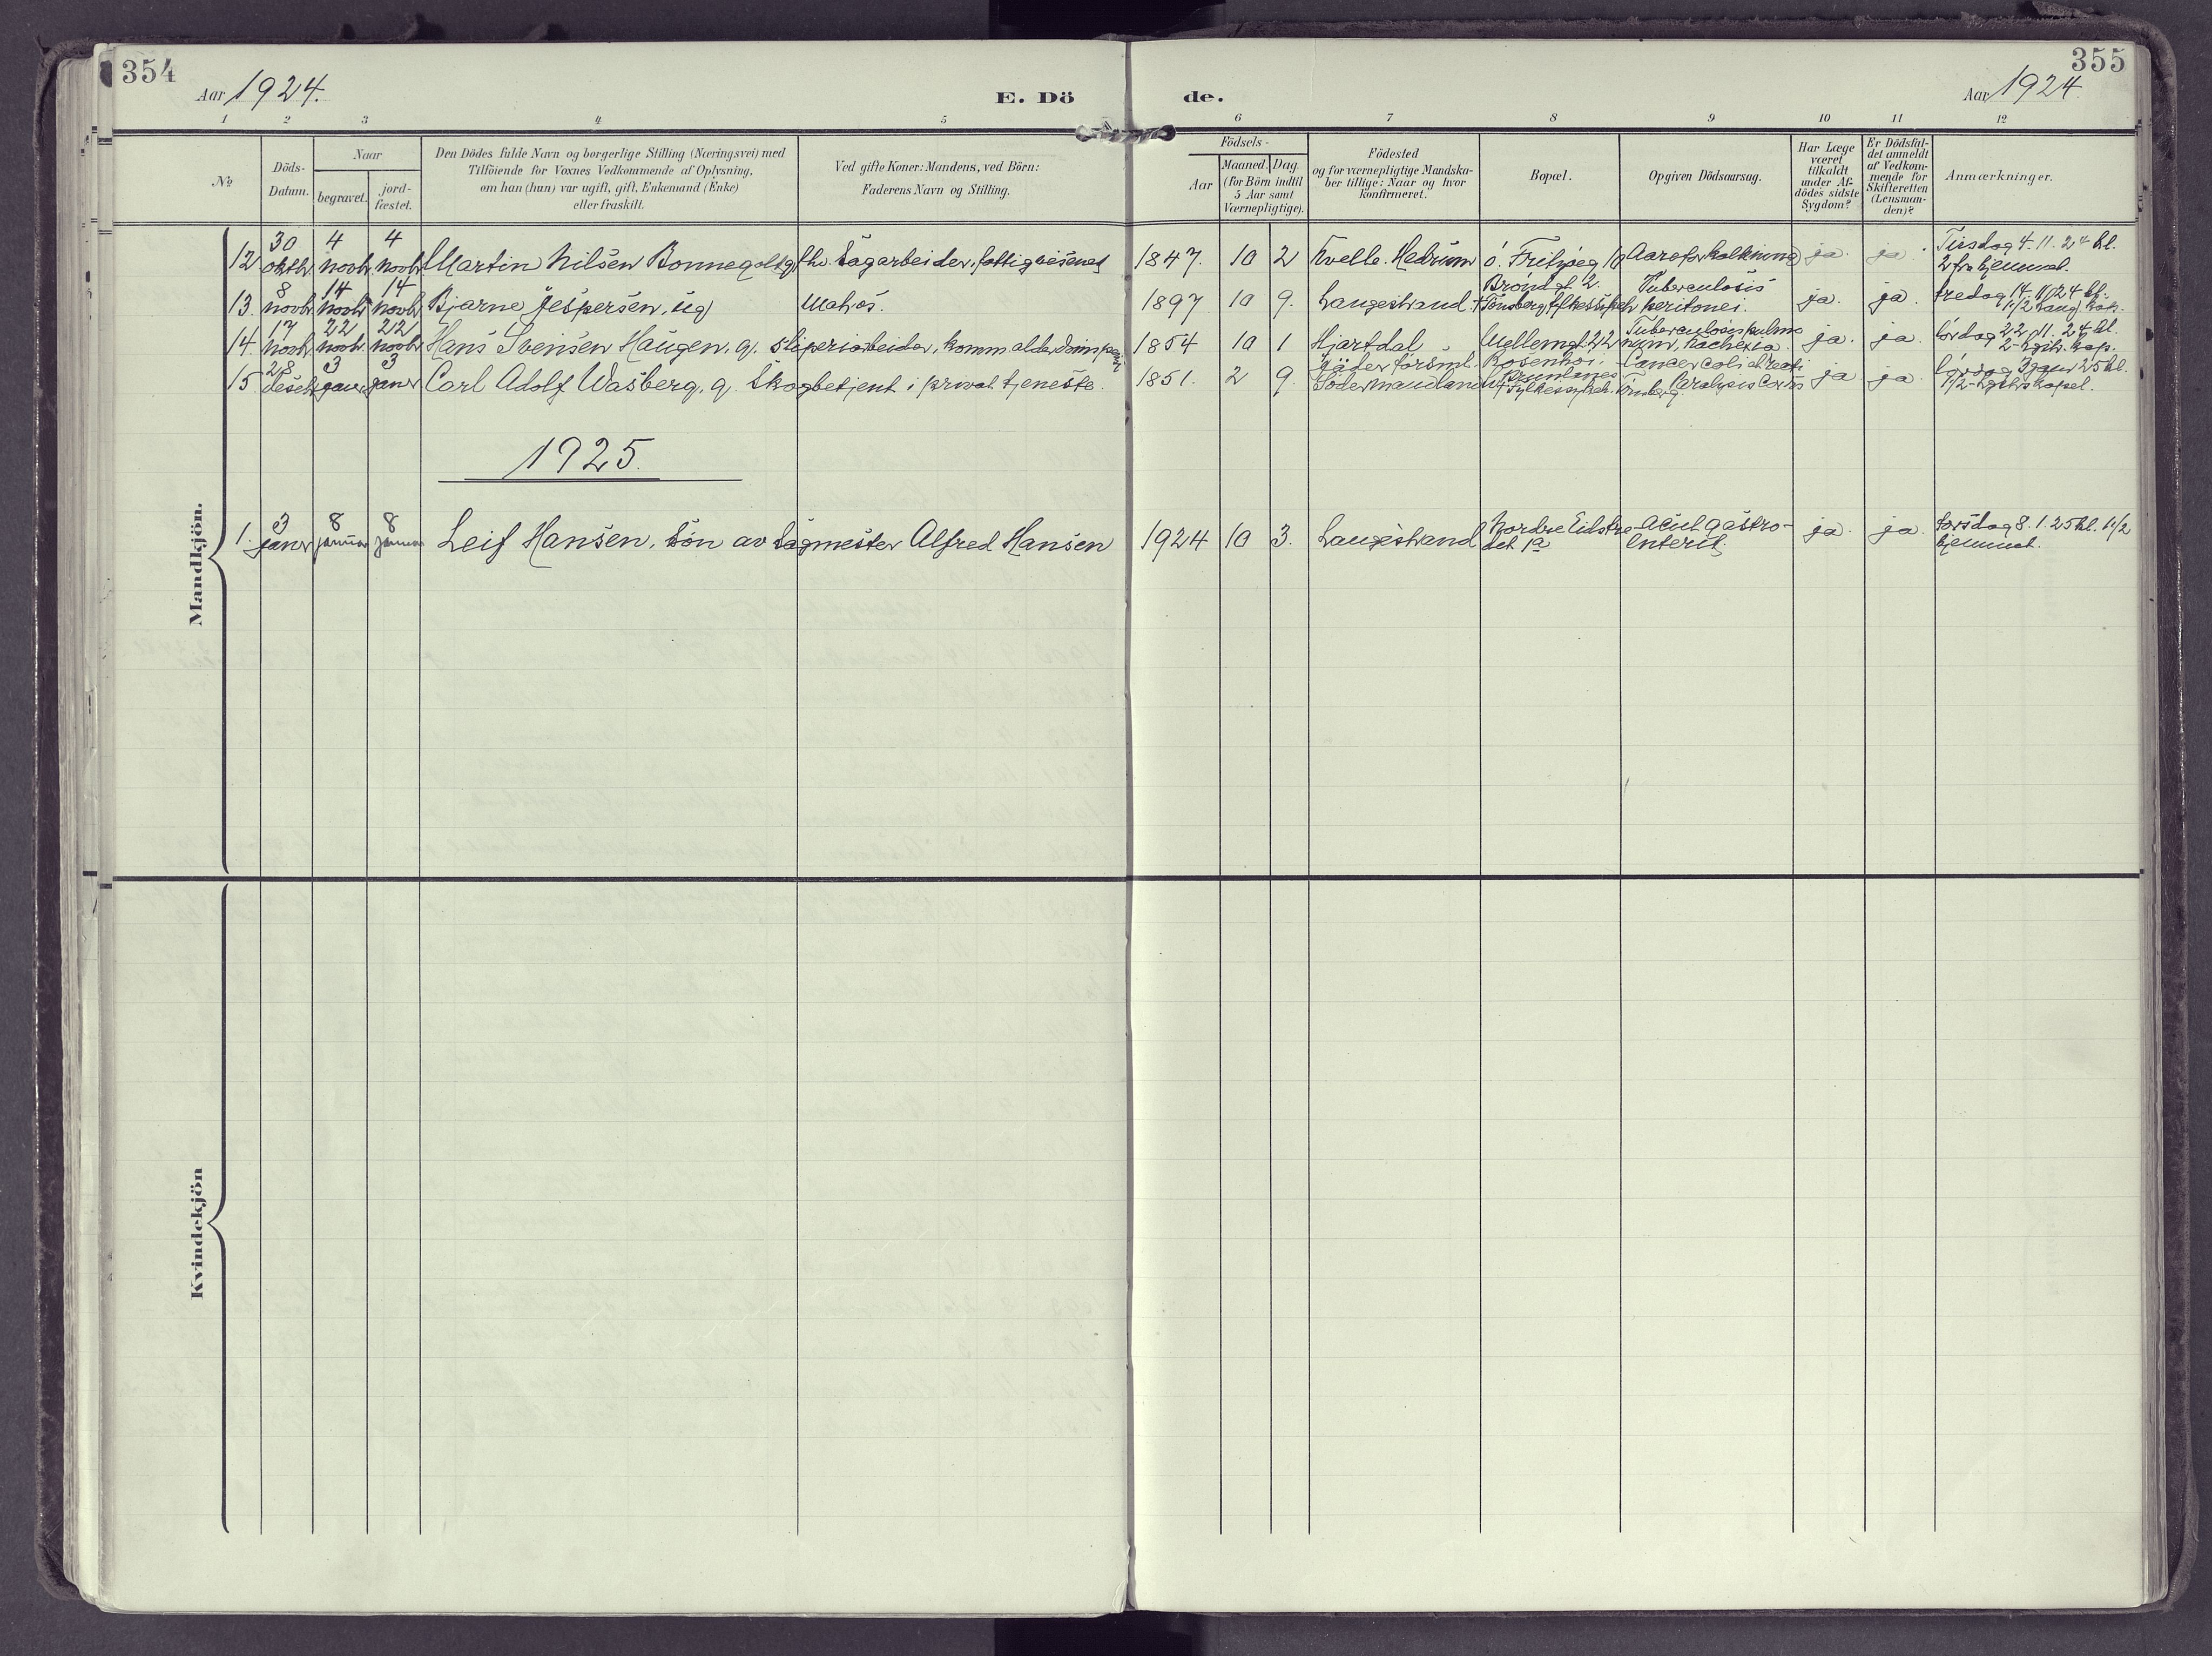 354
Aar 1924.
E. Dö
de.
355
Aar 1924
1 2 3 4 5 6 7 8 9 10 11 12
№
Döds-
Datum.
Naar
begravet.
jord-
fæstet.
Den Dödes fulde Navn og borgerlige Stilling (Næringsvei) med
Tilföiende for Voxnes Vedkommende af Oplysning,
om han (hun) var ugift, gift, Enkemand (Enke)
eller fraskilt.
Ved gifte Koner: Mandens, ved Börn:
Faderens Navn og Stilling.
Födsels-
Aar
Maaned.
Dag.
(for Börn indtil
5 Aar samt
Værnepligtige).
Födested
og for værnepligtige Mandska-
ber tillige: Naar og hvor
konfirmeret.
Bopæl.
Opgiven Dödsaarsag.
Har Læge
været
tilkaldt
under Af-
dödes sidste
Sygdom?
Er Dödsfal-
det anmeldt
af Vedkom-
mende for
Skifteretten
(Lensman-
den)?
Anmærkninger.
Mandkjön.
12 30 oktbr 4 novbr 4 novbr Martin Nilsen Bonnegolt g. fhv. Sagarbeider, fattigvesenet 1847. 10 2 Kvelle. Hedrum ö. Fritzöeg 10 Aareforkalkning ja. ja. Tirsdag 4-11. 24 kl.
2 fra hjemmet.
13. 8 novbr 14 novbr 14 novbr Bjarne Jespersen, ug Matros. 1897 10 9. Langestrand Bröndgt 2.
+ Tönsberg fylkessykeh Tuberculosis
peritonei. ja. ja. fredag 14. 11. 24 kl.
1 1/2 Lang. kap.
14. 17 novbr 22 novbr 22 novbr Hans Svensen Haugen, g. sliperiarbeider, komm alderdomspen 1854 10 1 Hjartdal Mellemgt. 22 Tuberculosis pulmo
num, kachexia ja. ja. lördag 22. 11. 24 kl.
2 kap.
15 28 desebr 3 janr 3 janr Carl Adolf Wasberg, g. Skogbetjent i privat tjeneste. 1851. 2 9. Jäder forsml.
Södermanland Rosenhöi
Brunlanes
+ Fylkessykeh. Tönsberg. Cancer coli et recti
Paralysis Cordis ja ja. Lörsdag 3 janr 25 kl.
1 1/2 kapel.
1925.
1. 3 janr 8 januar 8 januar Leif Hansen, Sön av Sagmester Alfred Hansen 1924 10 3. Langestrand Nordre Eidstre
det 1a Acut gastro-
enterit. ja. ja. torsdag 8. 1. 25 kl. 1 1/2
hjemmet.
Kvindekjön